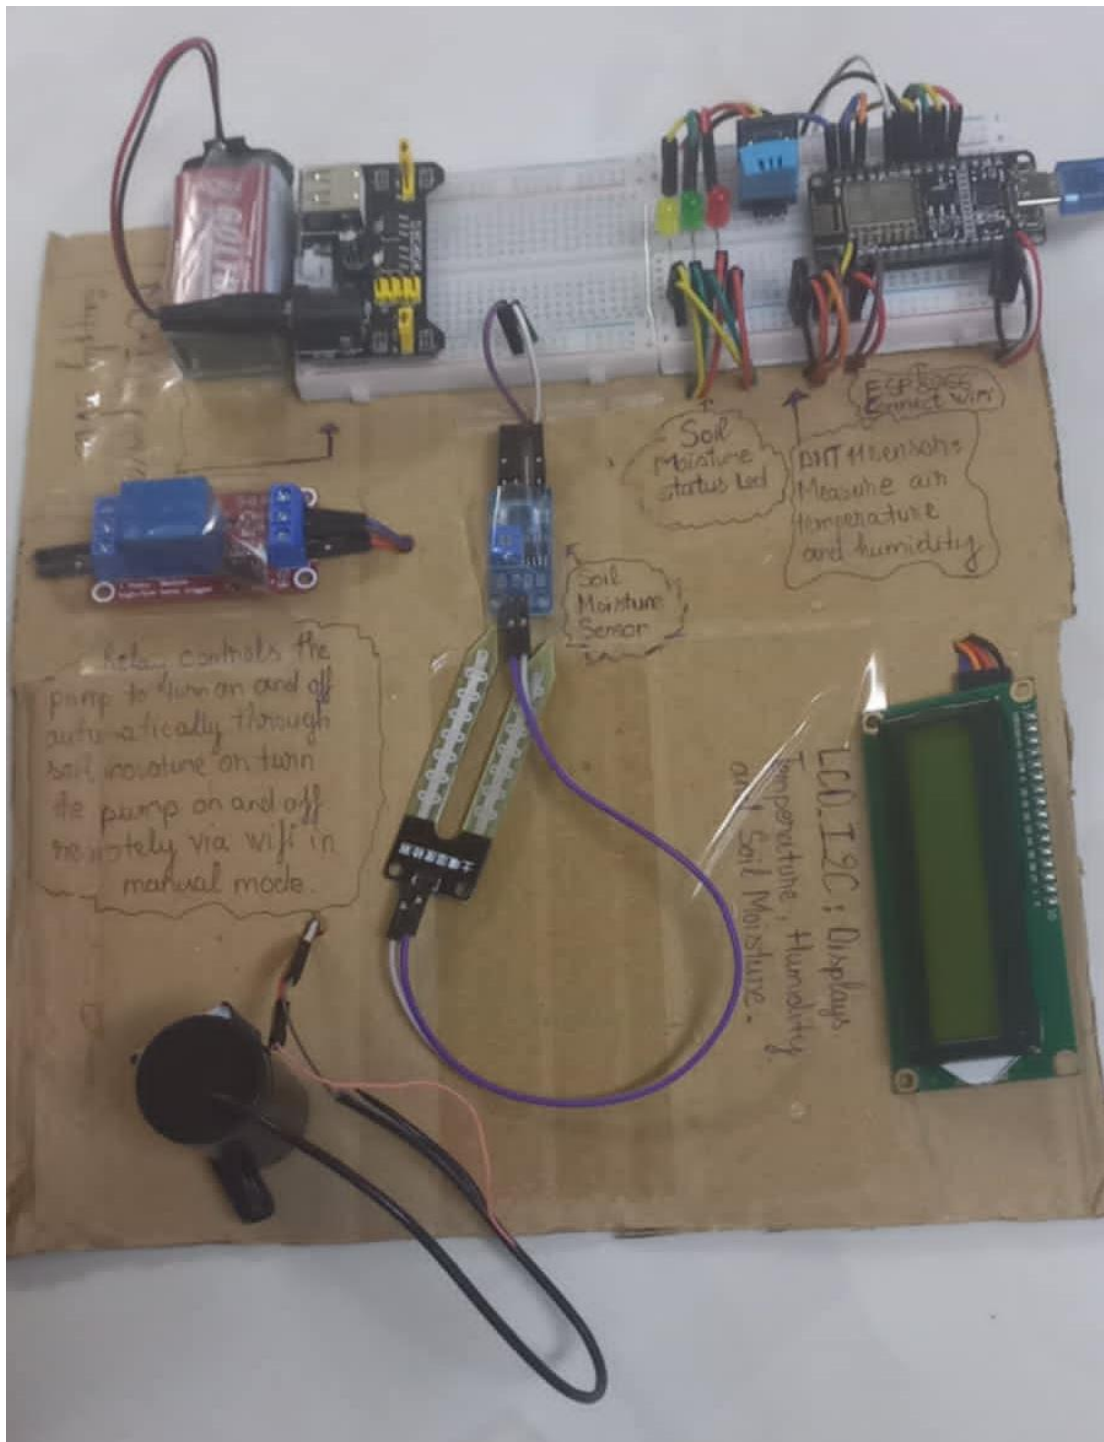 ESP8266
Connect Wifi
Soil
Moisture
status Led
DHT11 sensor:
Measure air
temperature
and humidity
Soil
Moisture
Sensor
Relay controls the
pump to turn on and off
automatically through
soil moisture or turn
the pump on and off
remotely via wifi in
manual mode.
LCD I2C: Displays
Temperature, Humidity
and Soil Moisture.
土壤湿度检测